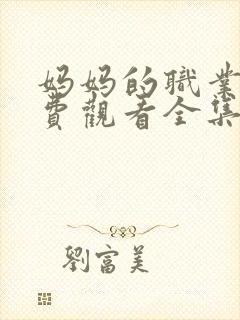 妈妈的職業
費觀看全集
劉富美